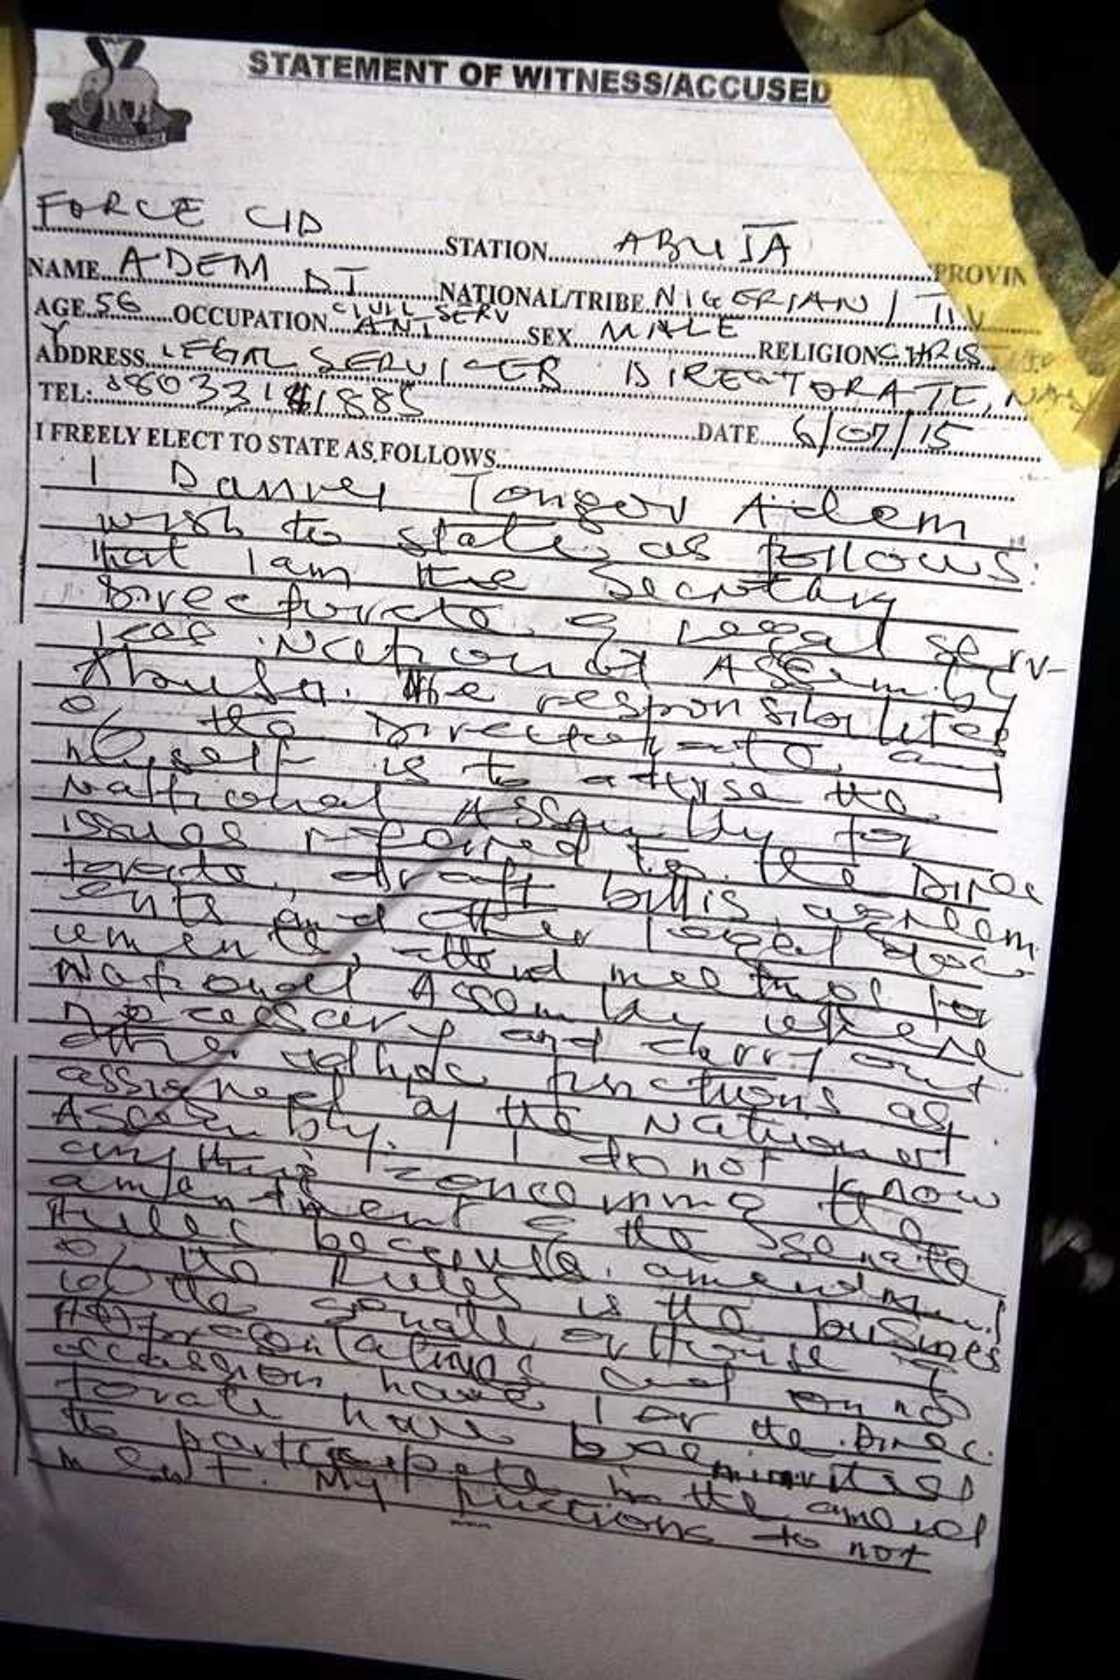 STATEMENT OF WITNESS/ACCUSED
FORCE CID STATION ABUJA PROVIN
NAME ADEM DT NATIONAL/TRIBE NIGERIAN / TIV
AGE 56 OCCUPATION CIVIL SERVANT SEX MALE RELIGION CHRIS
ADDRESS LEGAL SERVICES DIRECTORATE, NASS
TEL: DATE 6/07/15
I FREELY ELECT TO STATE AS FOLLOWS
I Daniel Tongov Adem
wish to state as follows:
that I am the Secretary
Directorate of Legal serv-
ices National Assembly
Abuja. The responsibilities
of the Directorate and
myself is to advise the
National Assembly for
issues referred to the Direc
torate, draft bills, agreem
ents and other legal doc-
uments, attend meetings for
National Assembly where
necessary and carry out
other adhoc functions as
assigned by the National
Assembly. I do not know
anything concerning the
amendment of the Senate
Rules because amendment
of the Rules is the business
of the Senate or House of
Representatives and on no
occasion have I or the Direc.
torate have been invited
to participate in the amend
ment. My functions to not